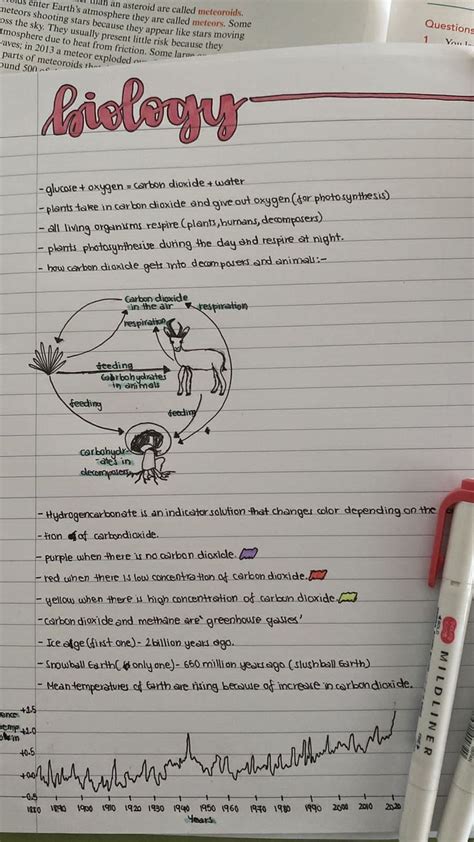 than an asteroid are called meteoroids.
enter Earth's atmosphere they are called meteors. Some
meteors shooting stars because they appear like stars moving
the sky. They usually present little risk because they
atmosphere due to heat from friction. Some large
in 2013 a meteor exploded
parts of meteoroids
Questions
1
biology
- glucose + oxygen = carbon dioxide + water
- plants take in carbon dioxide and give out oxygen (for photosynthesis)
- all living organisms respire (plants, humans, decomposers)
- plants photosynthesise during the day and respire at night.
- how carbon dioxide gets into decomposers and animals:-
carbon dioxide
in the air
respiration
respiration
feeding
carbohydrates
in animals
feeding
feeding
carbohydr-
-ates in
decomposers
- Hydrogencarbonate is an indicator solution that changes color depending on the
-tration of carbondioxide.
- purple when there is no carbon dioxide.
- red when there is low concentration of carbon dioxide.
- yellow when there is high concentration of carbon dioxide.
- carbon dioxide and methane are 'greenhouse gasses'
- Ice age (first one) - 2 billion years ago.
- Snowball Earth (only one) - 650 million years ago (slushball Earth)
- Mean temperatures of Earth are rising because of increase in carbon dioxide.
+1.5
+1.0
+0.5
+0.0
-0.5
1880 1890 1900 1910 1920 1930 1940 1950 1960 1970 1980 1990 2000 2010 2020
Years
MILDLINER